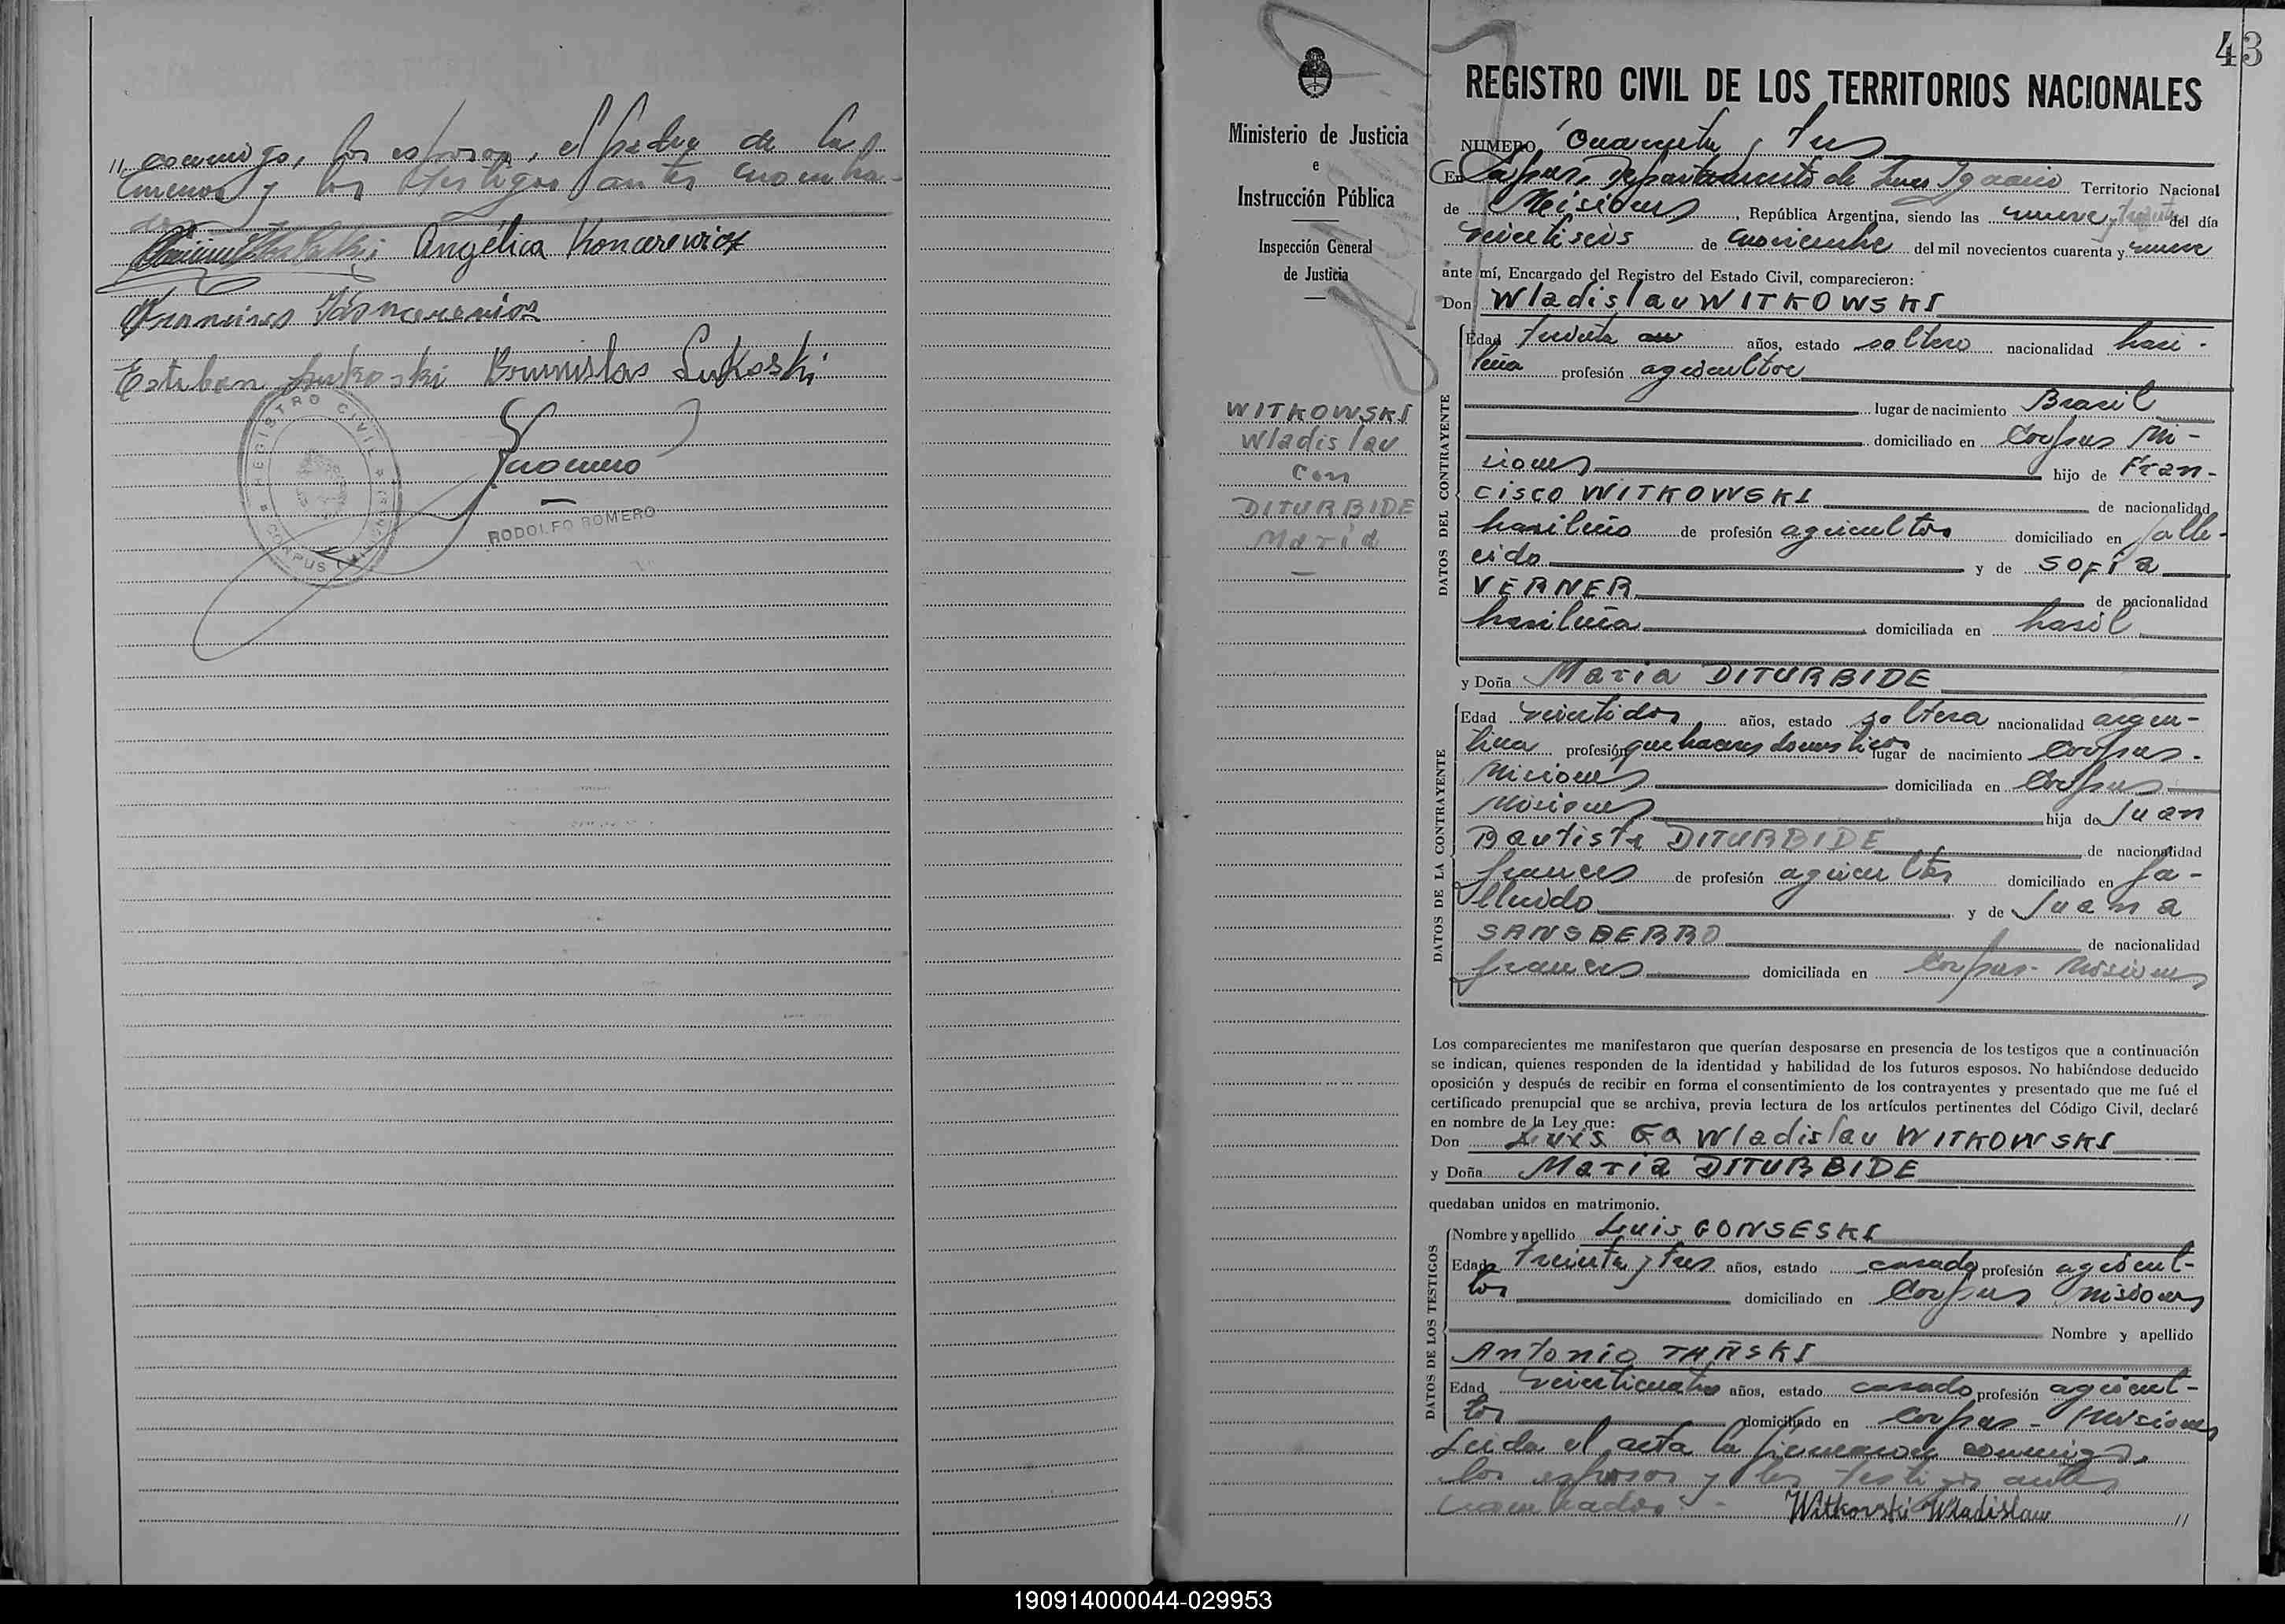 " conmigo, los esposos, el padre de la
menor y los testigos antes nombra-
dos
Angélica Koncerewicz
Francisco Koncerewicz
Esteban Lukoski Bronislao Lukoski
REGISTRO CIVIL
CORPUS (MISIONES)
Rromero
RODOLFO ROMERO
43
Ministerio de Justicia
e
Instrucción Pública
Inspección General
de Justicia
WITKOWSKI
Wladislau
con
DITURBIDE
María
REGISTRO CIVIL DE LOS TERRITORIOS NACIONALES
NUMERO Cuarenta y tres
En Corpus, Departamento de San Ignacio Territorio Nacional
de Misiones, República Argentina, siendo las nueve y treinta del día
veintiseis de noviembre del mil novecientos cuarenta y nueve
ante mí, Encargado del Registro del Estado Civil, comparecieron:
Don Wladislau WITKOWSKI
Edad treinta años, estado soltero nacionalidad brasi-
leña profesión agricultor
lugar de nacimiento Brasil
domiciliado en Corpus Mi-
siones hijo de Fran-
cisco WITKOWSKI de nacionalidad
brasileño de profesión agricultor domiciliado en falle-
cido y de SOFIA
VERNER de nacionalidad
brasileña domiciliada en brasil
DATOS DEL CONTRAYENTE
y Doña María DITURBIDE
Edad veintidos años, estado soltera nacionalidad argen-
tina profesión quehaceres domesticos lugar de nacimiento Corpus-
Misiones domiciliada en Corpus
Misiones hija de Juan
Bautista DITURBIDE de nacionalidad
frances de profesión agricultor domiciliado en fa-
llecido y de Juana
SANSBERRO de nacionalidad
frances domiciliada en Corpus- Misiones
DATOS DE LA CONTRAYENTE
Los comparecientes me manifestaron que querían desposarse en presencia de los testigos que a continuación
se indican, quienes responden de la identidad y habilidad de los futuros esposos. No habiéndose deducido
oposición y después de recibir en forma el consentimiento de los contrayentes y presentado que me fué el
certificado prenupcial que se archiva, previa lectura de los artículos pertinentes del Código Civil, declaré
en nombre de la Ley que:
Don Luis Go Wladislau WITKOWSKI
y Doña María DITURBIDE
quedaban unidos en matrimonio.
Nombre y apellido Luis GONSESKI
Edad treinta y tres años, estado casado profesión agricul-
tor domiciliado en Corpus Misiones
Nombre y apellido
Antonio TAÑSKI
Edad veinticuatro años, estado casado profesión agricul-
tor domiciliado en Corpus - Misiones
DATOS DE LOS TESTIGOS
Leida el acta la firmaron conmigo,
los esposos y los testigos antes
nombrados.- Witkovski Wladislau //
190914000044-029953